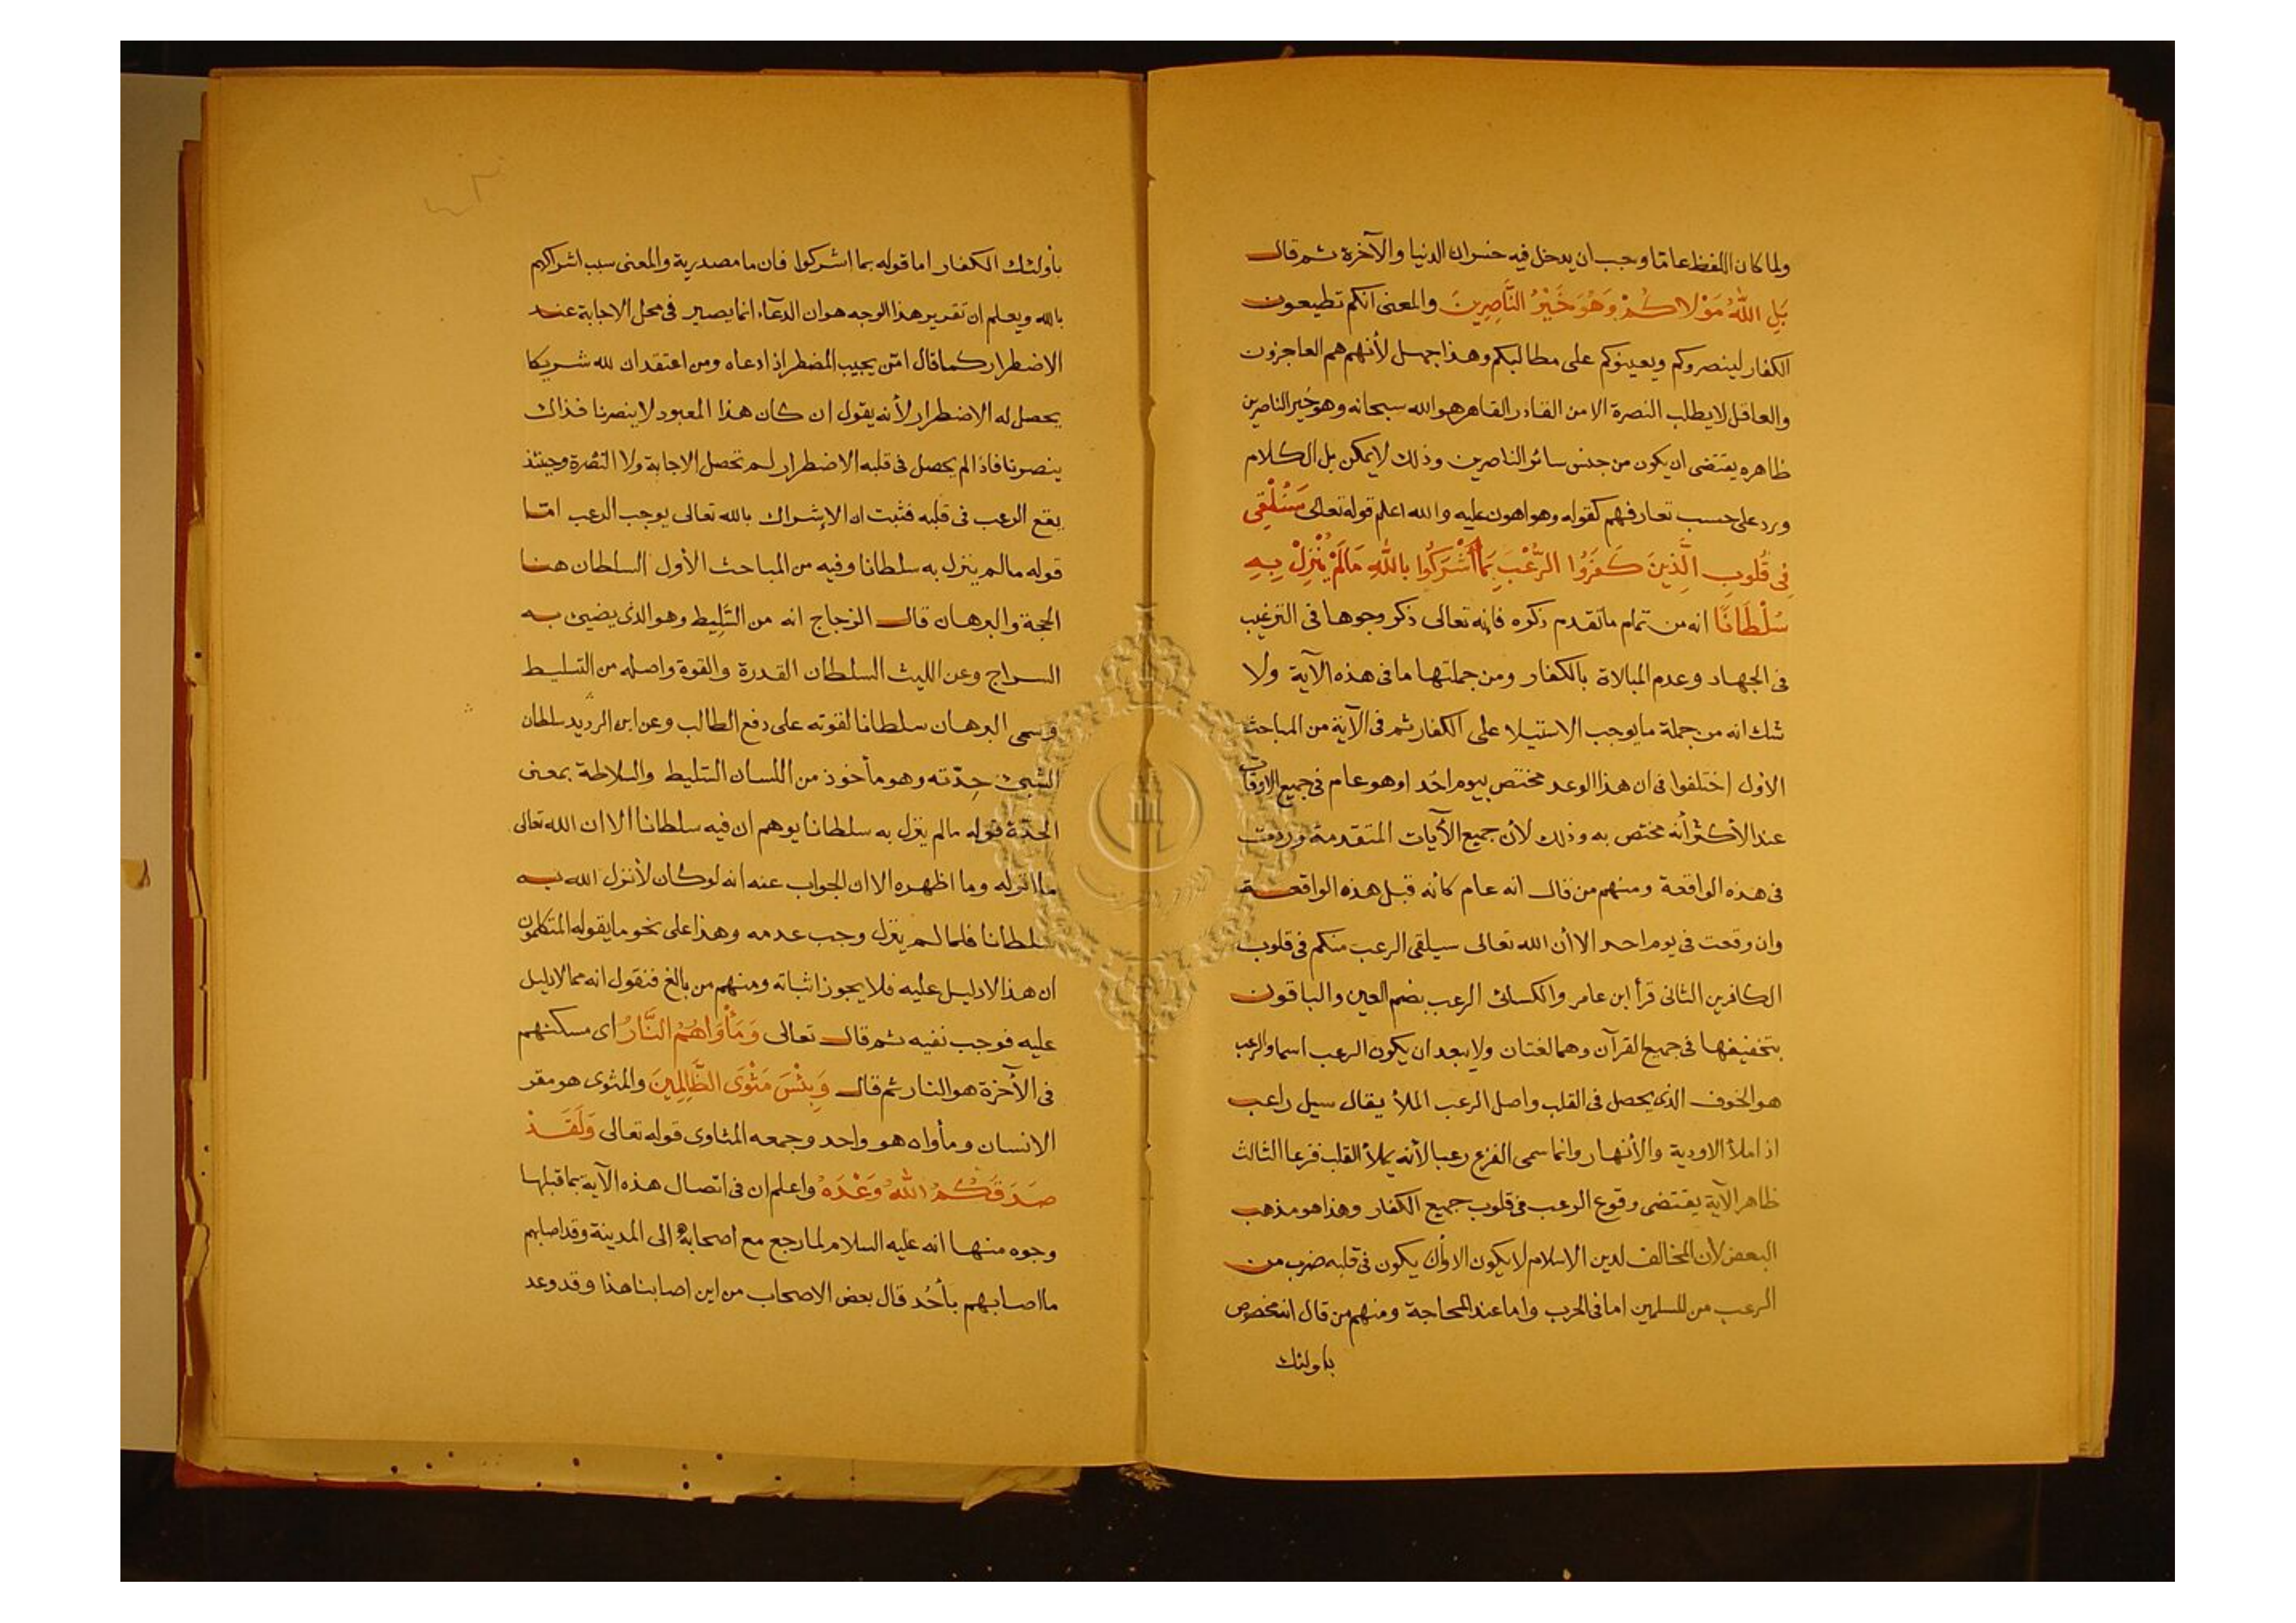 ولما كان اللفظ عامّا وجب ان يدخل فيه خسران الدنيا والآخرة ثم قال
بَلِ اللهُ مَوْلاكُمْ وَهُوَ خَيْرُ النَّاصِرِينَ والمعنى انكم تطيعون
الكفار لينصروكم ويعينوكم على مطالبكم وهذا جهل لأنهم هم العاجزون
والعاقل لا يطلب النصرة الا من القادر القاهر هو الله سبحانه وهو خير الناصرين
ظاهره يقتضى ان يكون من جنس سائر الناصرين وذلك لا يمكن بل الكلام
ورد على حسب تعارفهم كقوله وهو اهون عليه والله اعلم قوله تعالى سَنُلْقِى
فِى قُلُوبِ الَّذِينَ كَفَرُوا الرُّعْبَ بِمَا أَشْرَكُوا بِاللهِ مَالَمْ يُنْزِلْ بِهِ
سُلْطَانًا انه من تمام ما تقدم ذكره فإنه تعالى ذكر وجوها فى الترغيب
فى الجهاد وعدم المبالاة بالكفار ومن جملتها ما فى هذه الآية ولا
شك انه من جملة ما يوجب الاستيلا على الكفار ثم فى الآية من المباحث
الاول اختلفوا فى ان هذا الوعد مختص بيوم احُد او هو عام فى جميع الاوقات
عند الأكثر أنه مختص به وذلك لأن جميع الآيات المتقدمة وردت
فى هذه الواقعة ومنهم من قال انه عام كأنه قبل هذه الواقعة
وان وقعت فى يوم احد الا أن الله تعالى سيلقى الرعب منكم فى قلوب
الكافرين الثانى قرأ ابن عامر والكسائى الرعب بضم العين والباقون
بتخفيفها فى جميع القرآن وهما لغتان ولا يبعد ان يكون الرعب اسما والرعب
هو الخوف الذى يحصل فى القلب واصل الرعب الملأ يقال سيل راعب
اذا ملأ الاودية والأنهار وانما سمى الفزع رعبا لأنه يملأ القلب فزعا الثالث
ظاهر الآية يقتضى وقوع الرعب فى قلوب جميع الكفار وهذا هو مذهب
البعض لأن المخالف لدين الاسلام لا يكون الا وأن يكون فى قلبه ضرب من
الرعب من المسلمين اما فى الحرب واما عند المحاجة ومنهم من قال انه مخصوص
باولئك
بأولئك الكفار اما قوله بما اشركوا فان ما مصدرية والمعنى سبب اشراكهم
بالله ويعلم ان تقرير هذا الوجه هو ان الدعآء انما يصير فى محل الاجابة عند
الاضطرار كما قال امّن يجيب المضطر اذا دعاه ومن اعتقد ان لله شريكا
يحصل له الاضطرار لأنه يقول ان كان هذا المعبود لا ينصرنا فذاك
ينصرنا فاذا لم يحصل فى قلبه الاضطرار لم تحصل الاجابة ولا النصْرة وحينئذ
يقع الرعب فى قلبه فثبت ان الإشراك بالله تعالى يوجب الرعب امّا
قوله مالم ينزل به سلطانا وفيه من المباحث الأول السلطان هنا
الحجة والبرهان قال الزجاج انه من السَّلِيط وهو الذى يضيئ به
السراج وعن الليث السلطان القدرة والقوة واصله من التسليط
وسمى البرهان سلطانا لقوته على دفع الطالب وعن ابن الدريد سلطان
الشيئ حِدّته وهو مأخوذ من اللسان السّليط والسلاطة بمعنى
الحدّة قوله مالم ينزل به سلطانا يوهم ان فيه سلطانا الا ان الله تعالى
ما انزله وما اظهره الا ان الجواب عنه انه لو كان لأنزل الله به
سلطانا فلما لم ينزل وجب عدمه وهذا على نحو ما يقوله المتكلمون
ان هذا لا دليل عليه فلا يجوز اثباته ومنهم من بالغ فنقول انه مما لا دليل
عليه فوجب نفيه ثم قال تعالى وَمَأْوَاهُمُ النَّارُ اى مسكنهم
فى الآخرة هو النار ثم قال وَبِئْسَ مَثْوَى الظَّالِمِينَ والمثوى هو مقر
الانسان ومأواه هو واحد وجمعه المثاوى قوله تعالى وَلَقَدْ
صَدَقَكُمُ اللهُ وَعْدَهُ واعلم ان فى اتصال هذه الآية بما قبلها
وجوه منها انه عليه السلام لما رجع مع اصحابه الى المدينة وقد اصابهم
ما اصابهم بأحُد قال بعض الاصحاب من اين اصابنا هذا وقد وعد